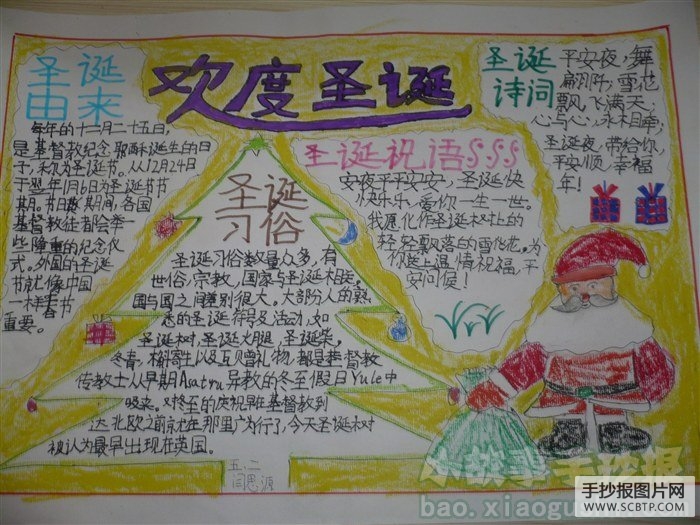 欢度圣诞
圣诞
由来
每年的十二月二十五日,
是基督教纪念耶稣诞生的日
子,称为圣诞节。从12月24日
于翌年1月6日为圣诞节节
期。节日期间,各国
基督教徒都会举
些隆重的纪念仪
式。外国的圣诞
节就像中国
一样春节
重要。
圣诞
习俗
圣诞习俗数量众多,有
世俗,宗教,国家与圣诞相关,
国与国之间差别很大。大部份人的熟
悉的圣诞符号及活动,如
圣诞树,圣诞火腿,圣诞柴,
冬青,槲寄生以及互贝曾礼物,都是基督教
传教士从早期Asatru异教的冬至假日Yule中
吸来。对冬至的庆祝早在基督教到
达北欧之前就在那里广为行了,今天圣诞树
被认为最早出现在英国。
五、二
闫思源
圣诞祝语SSS
安夜平平安安,圣诞快
快乐乐,爱你一生一世。
我愿化作圣诞树上的
轻轻飘落的雪花。为
你送上温情祝福,平
安问侯!
圣诞
诗词
平安夜,舞
翩阡,雪花
飘飞满天,
心与心,永相牵,
圣诞夜,带给你,
平安顺,幸福
年!
小故事手抄报
bao.xiaogu
手抄报图片网
WWW.SCBTP.COM